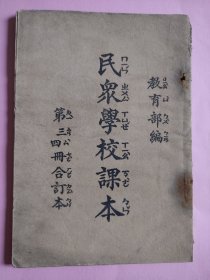 教育部編
民眾學校課本
第三四冊合訂本